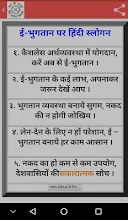 ई-भुगतान पर हिंदी स्लोगन
1. कैशलेस अर्थव्यवस्था में योगदान,
करें अब से ई-भुगतान ।
2. ई-भुगतान के कई लाभ, अपनाकर
जरूर देखें आप ।
3. भुगतान व्यवस्था बनाये सुगम, नकद
की न होगी जोखिम ।
4. लेन-देन के लिए न हों परेशान, ई –
भुगतान बनाये हर काम आसान ।
5. नकद का हो कम से कम उपयोग,
देशवासियों की सकारात्मक सोच ।